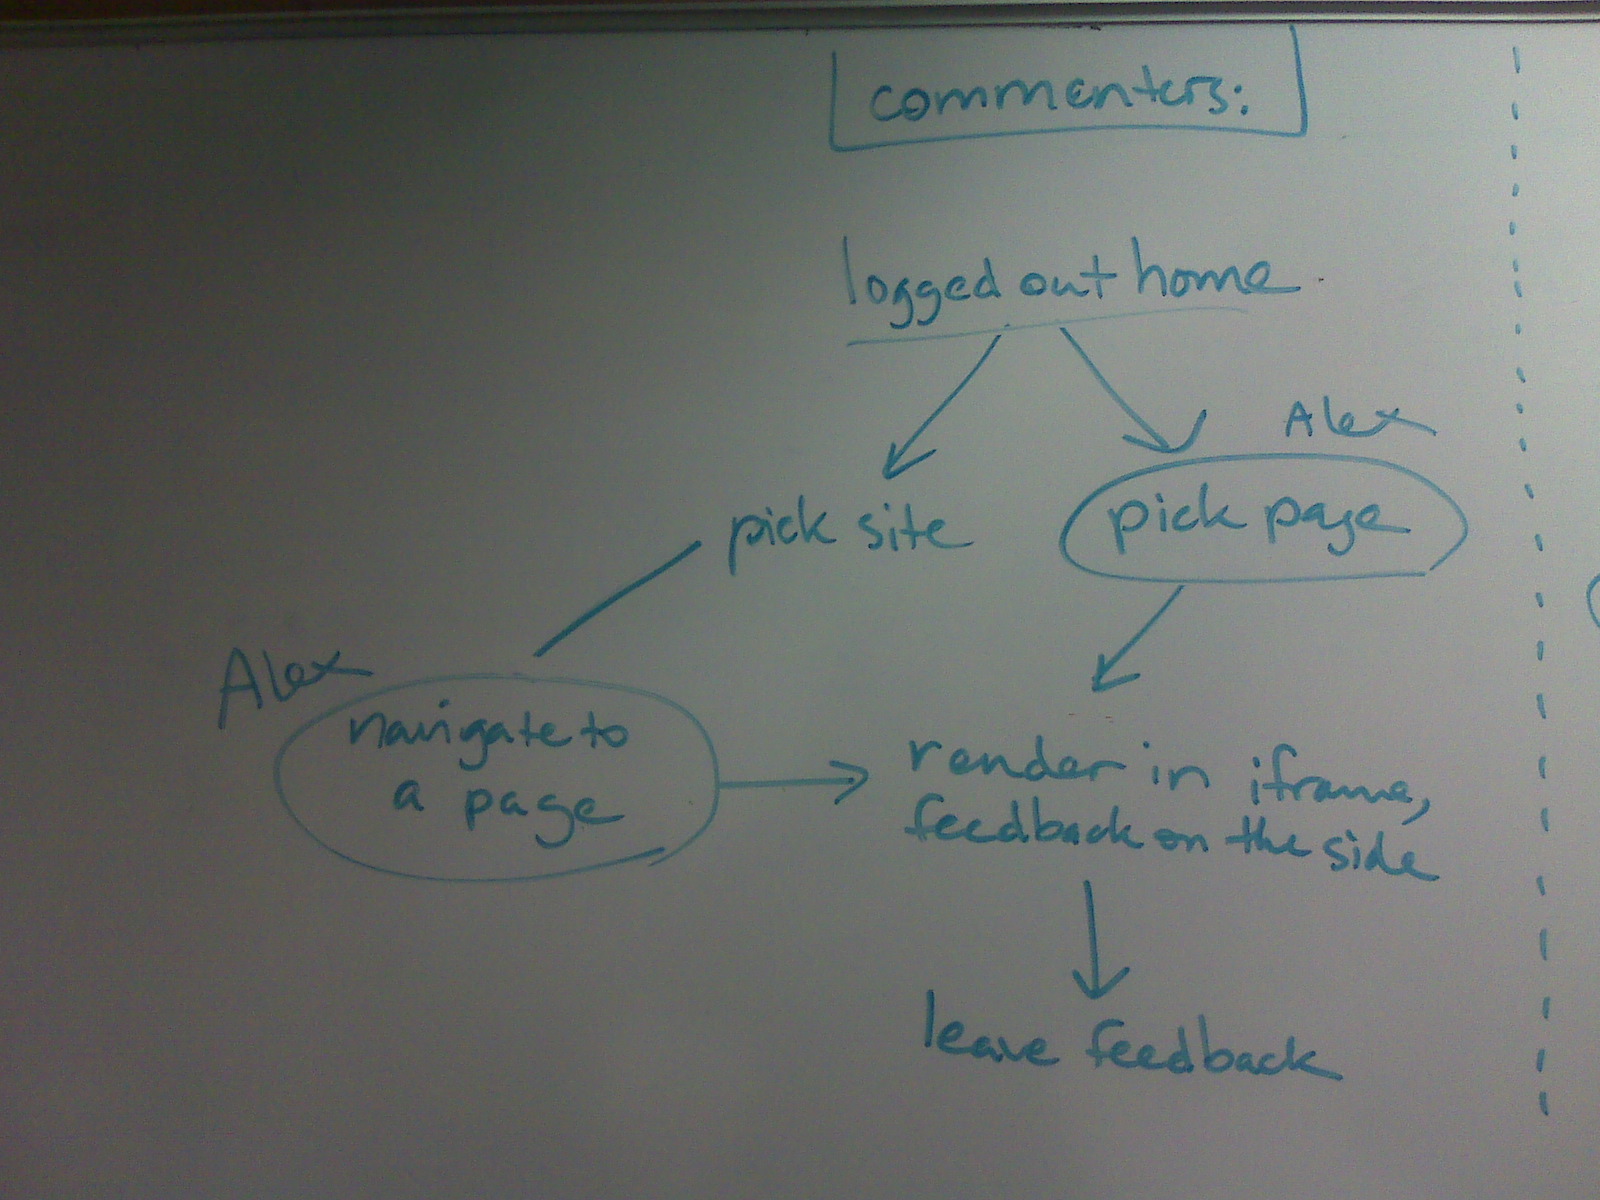 commenters:
logged out home
Alex
pick site
pick page
Alex
navigate to
a page
render in iframe,
feedback on the side
leave feedback